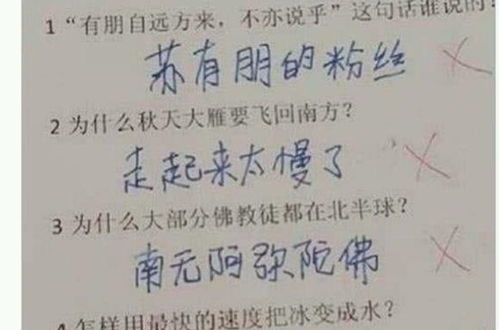 1“有朋自远方来，不亦说乎”这句话谁说的？
苏有朋的粉丝
2 为什么秋天大雁要飞回南方？
走起来太慢了
3 为什么大部分佛教徒都在北半球？
南无阿弥陀佛
4 怎样用最快的速度把冰变成水？